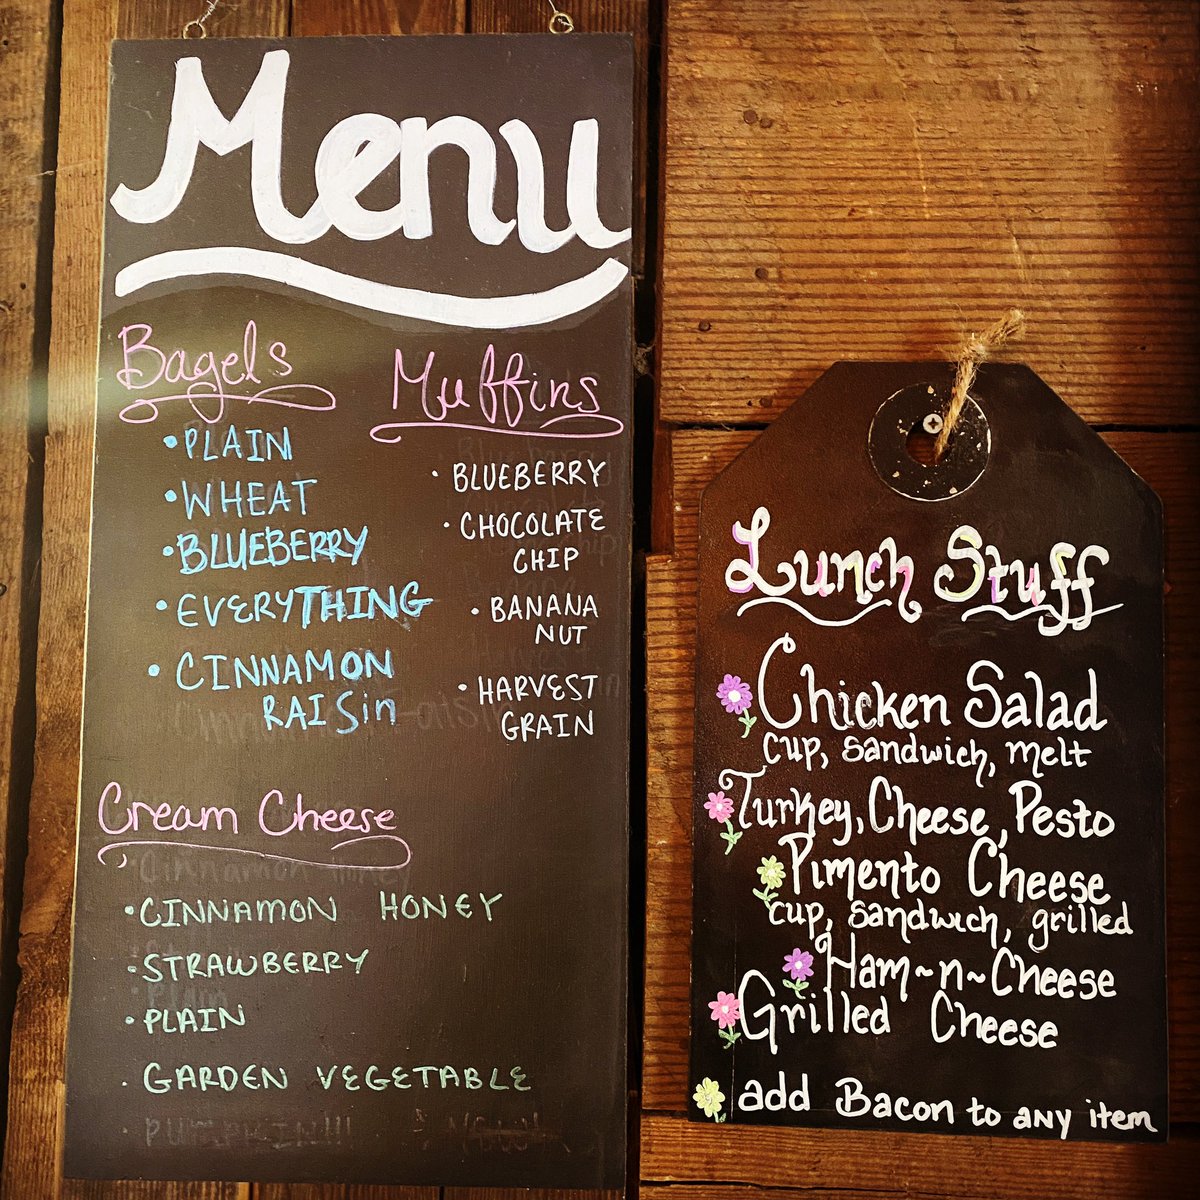 Menu
Bagels
• PLAIN
• WHEAT
• BLUEBERRY
• EVERYTHING
• CINNAMON
RAISin
Muffins
• BLUEBERRY
• CHOCOLATE
CHIP
• BANANA
NUT
• HARVEST
GRAIN
Cream Cheese
• CINNAMON HONEY
• STRAWBERRY
• PLAIN
• GARDEN VEGETABLE
Lunch Stuff
Chicken Salad
cup, sandwich, melt
Turkey, Cheese, Pesto
Pimento Cheese
cup, sandwich, grilled
Ham~n~Cheese
Grilled Cheese
add Bacon to any item